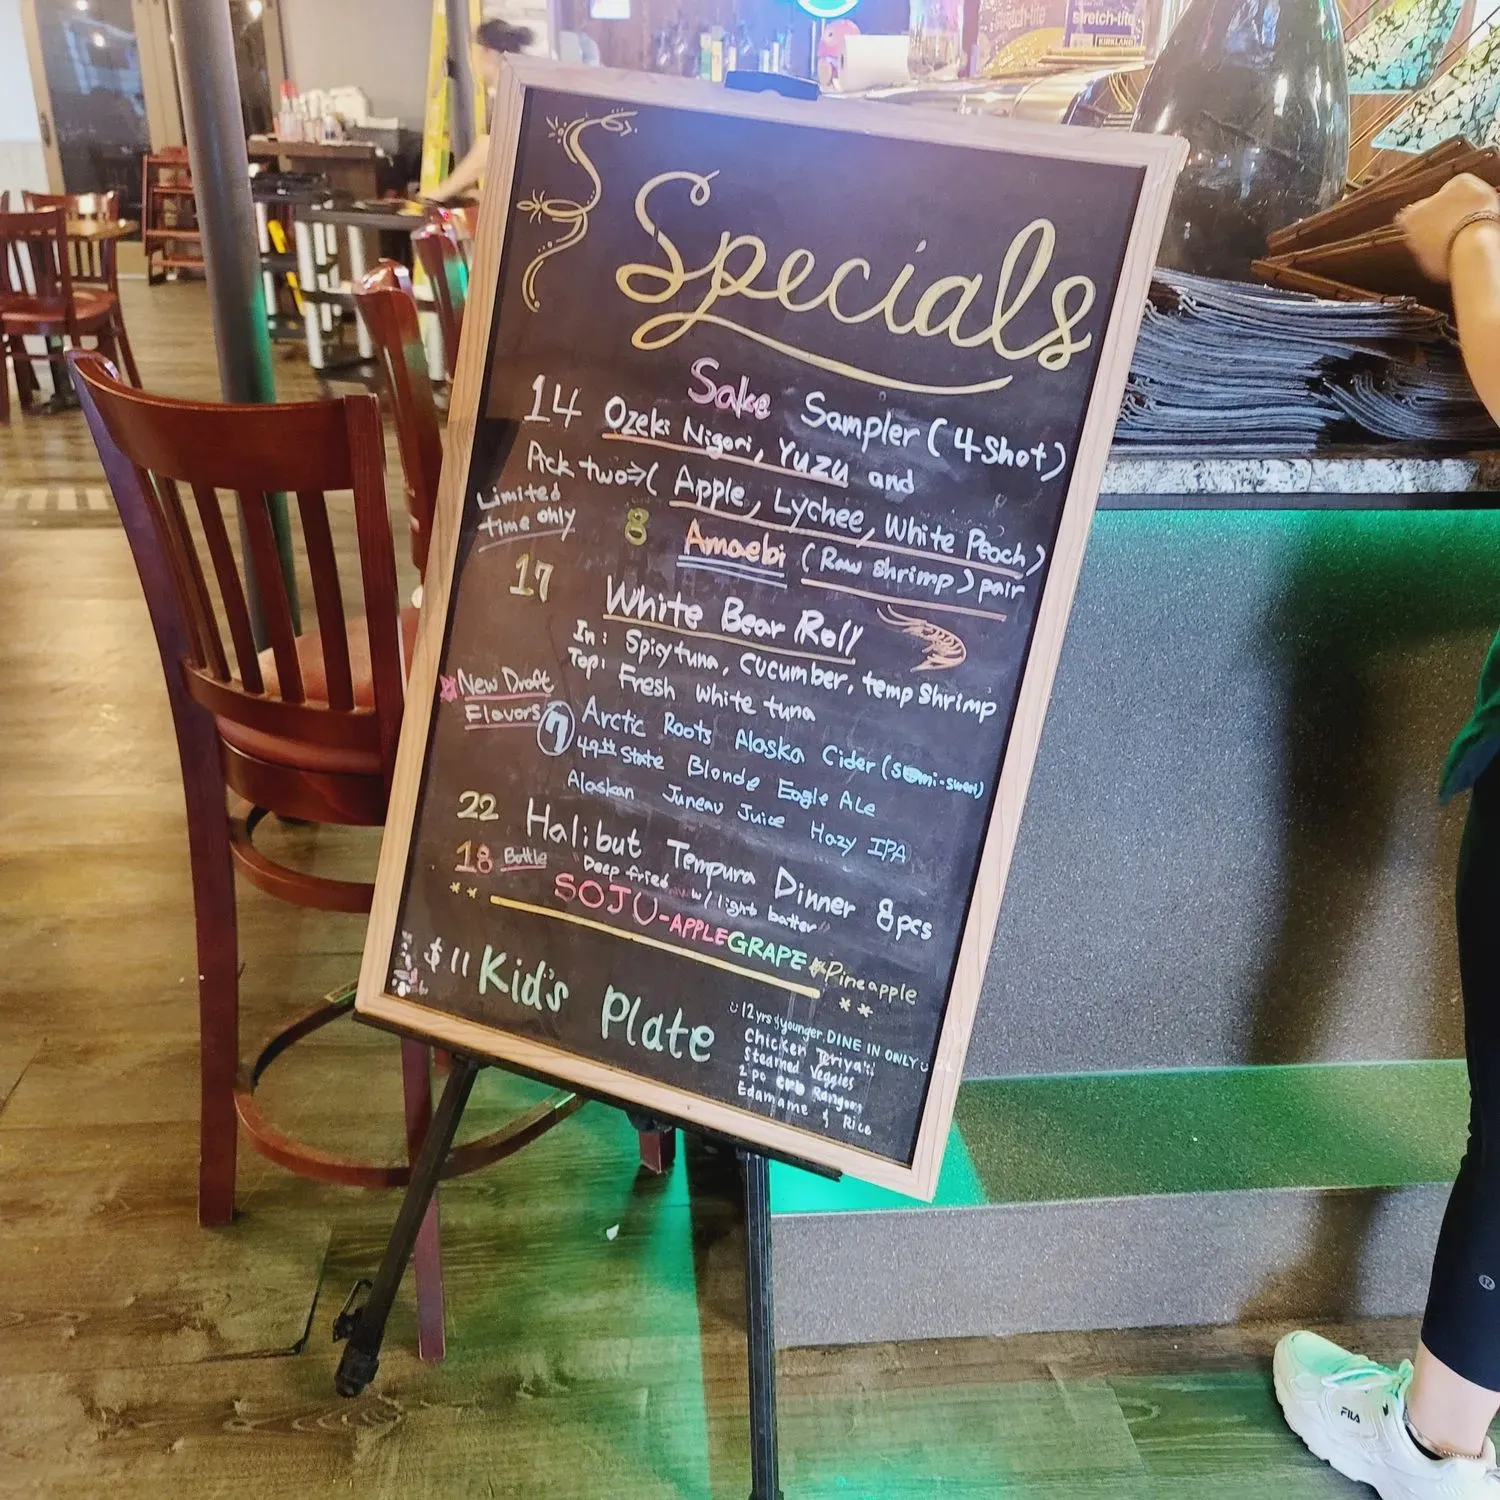 stretch-tite
stretch-tite
KIRKLAND
Specials
Sake Sampler (4 Shot)
14 Ozeki Nigori, Yuzu and
Pick two⇒( Apple, Lychee, White Peach)
Limited
time only
8 Amaebi (Raw Shrimp) pair
17 White Bear Roll
In: Spicy tuna, cucumber, temp shrimp
Top: Fresh white tuna
New Draft
Flavors
7 Arctic Roots Alaska Cider (Semi-sweet)
49th State Blonde Eagle Ale
Alaskan Juneau Juice Hazy IPA
22 Halibut Tempura Dinner 8pcs
"Deep fried w/ light batter"
18 Bottle SOJU-APPLE GRAPE Pineapple
$11 Kid's Plate
12 yrs & younger. DINE IN ONLY
Chicken Teriyaki
Steamed Veggies
2 pc crb Rangoon
Edamame & Rice
FILA